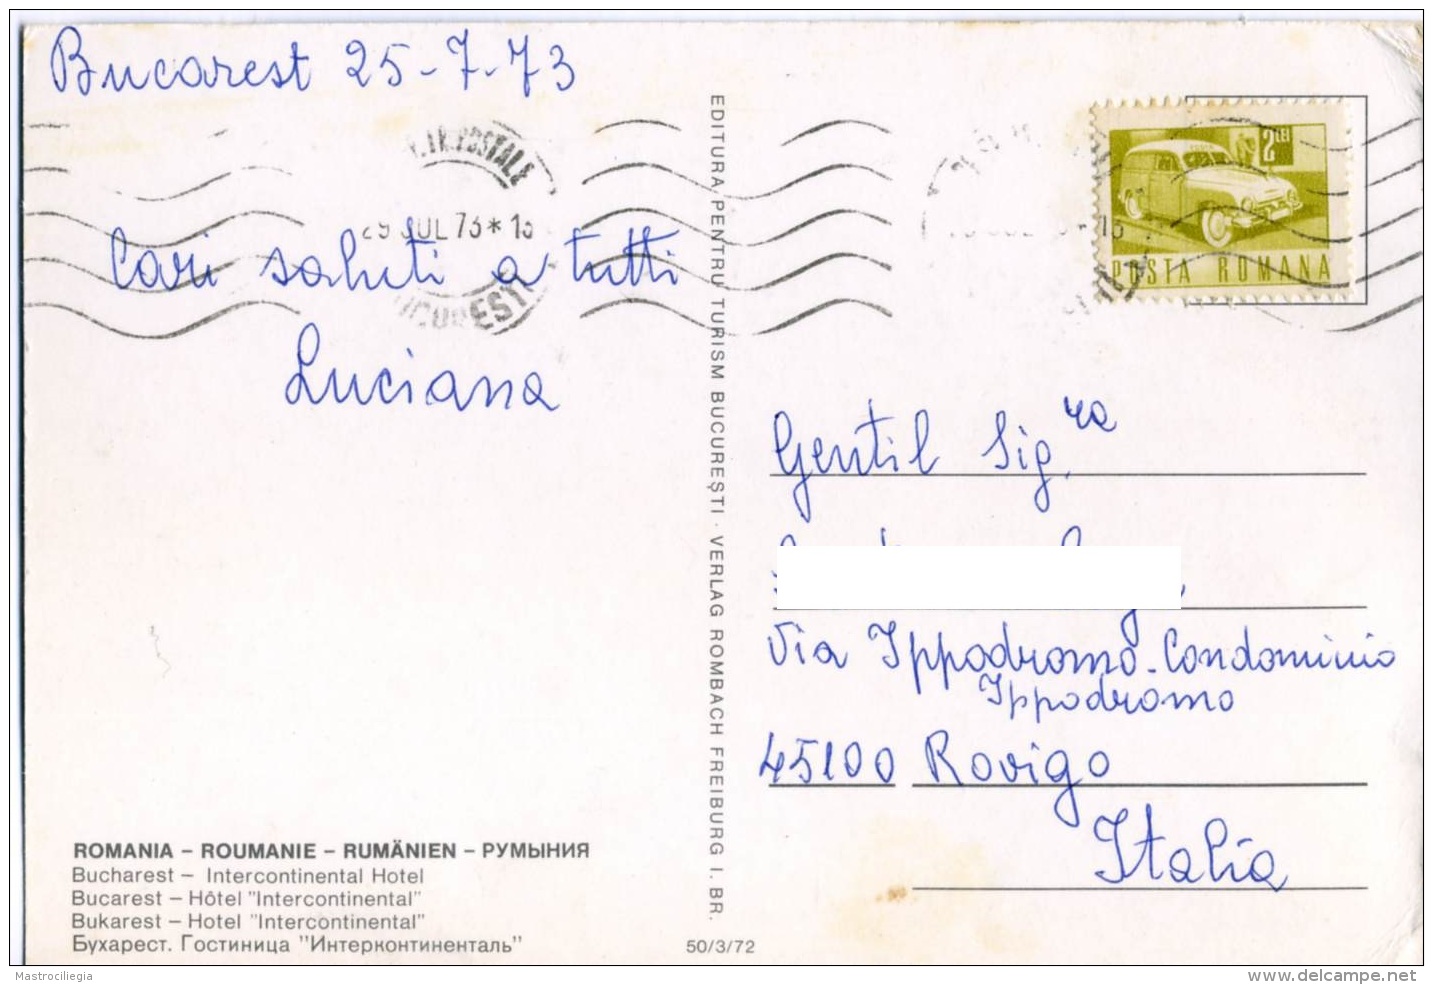 Bucarest 25-7-73
Cari saluti a tutti
Luciana
POSTALE
JUL 73*
2 LEI
POSTA ROMANA
EDITURA PENTRU TURISM BUCUREŞTI · VERLAG ROMBACH FREIBURG I. BR.
Gentil Sig.ra
Via Ippodromo-Condominio
Ippodromo
45100 Rovigo
Italia
ROMANIA – ROUMANIE – RUMÄNIEN – РУМЫНИЯ
Bucharest – Intercontinental Hotel
Bucarest – Hôtel "Intercontinental"
Bukarest – Hotel "Intercontinental"
Бухарест. Гостиница "Интерконтиненталь"
50/3/72
Mastrociliegia
www.delcampe.net